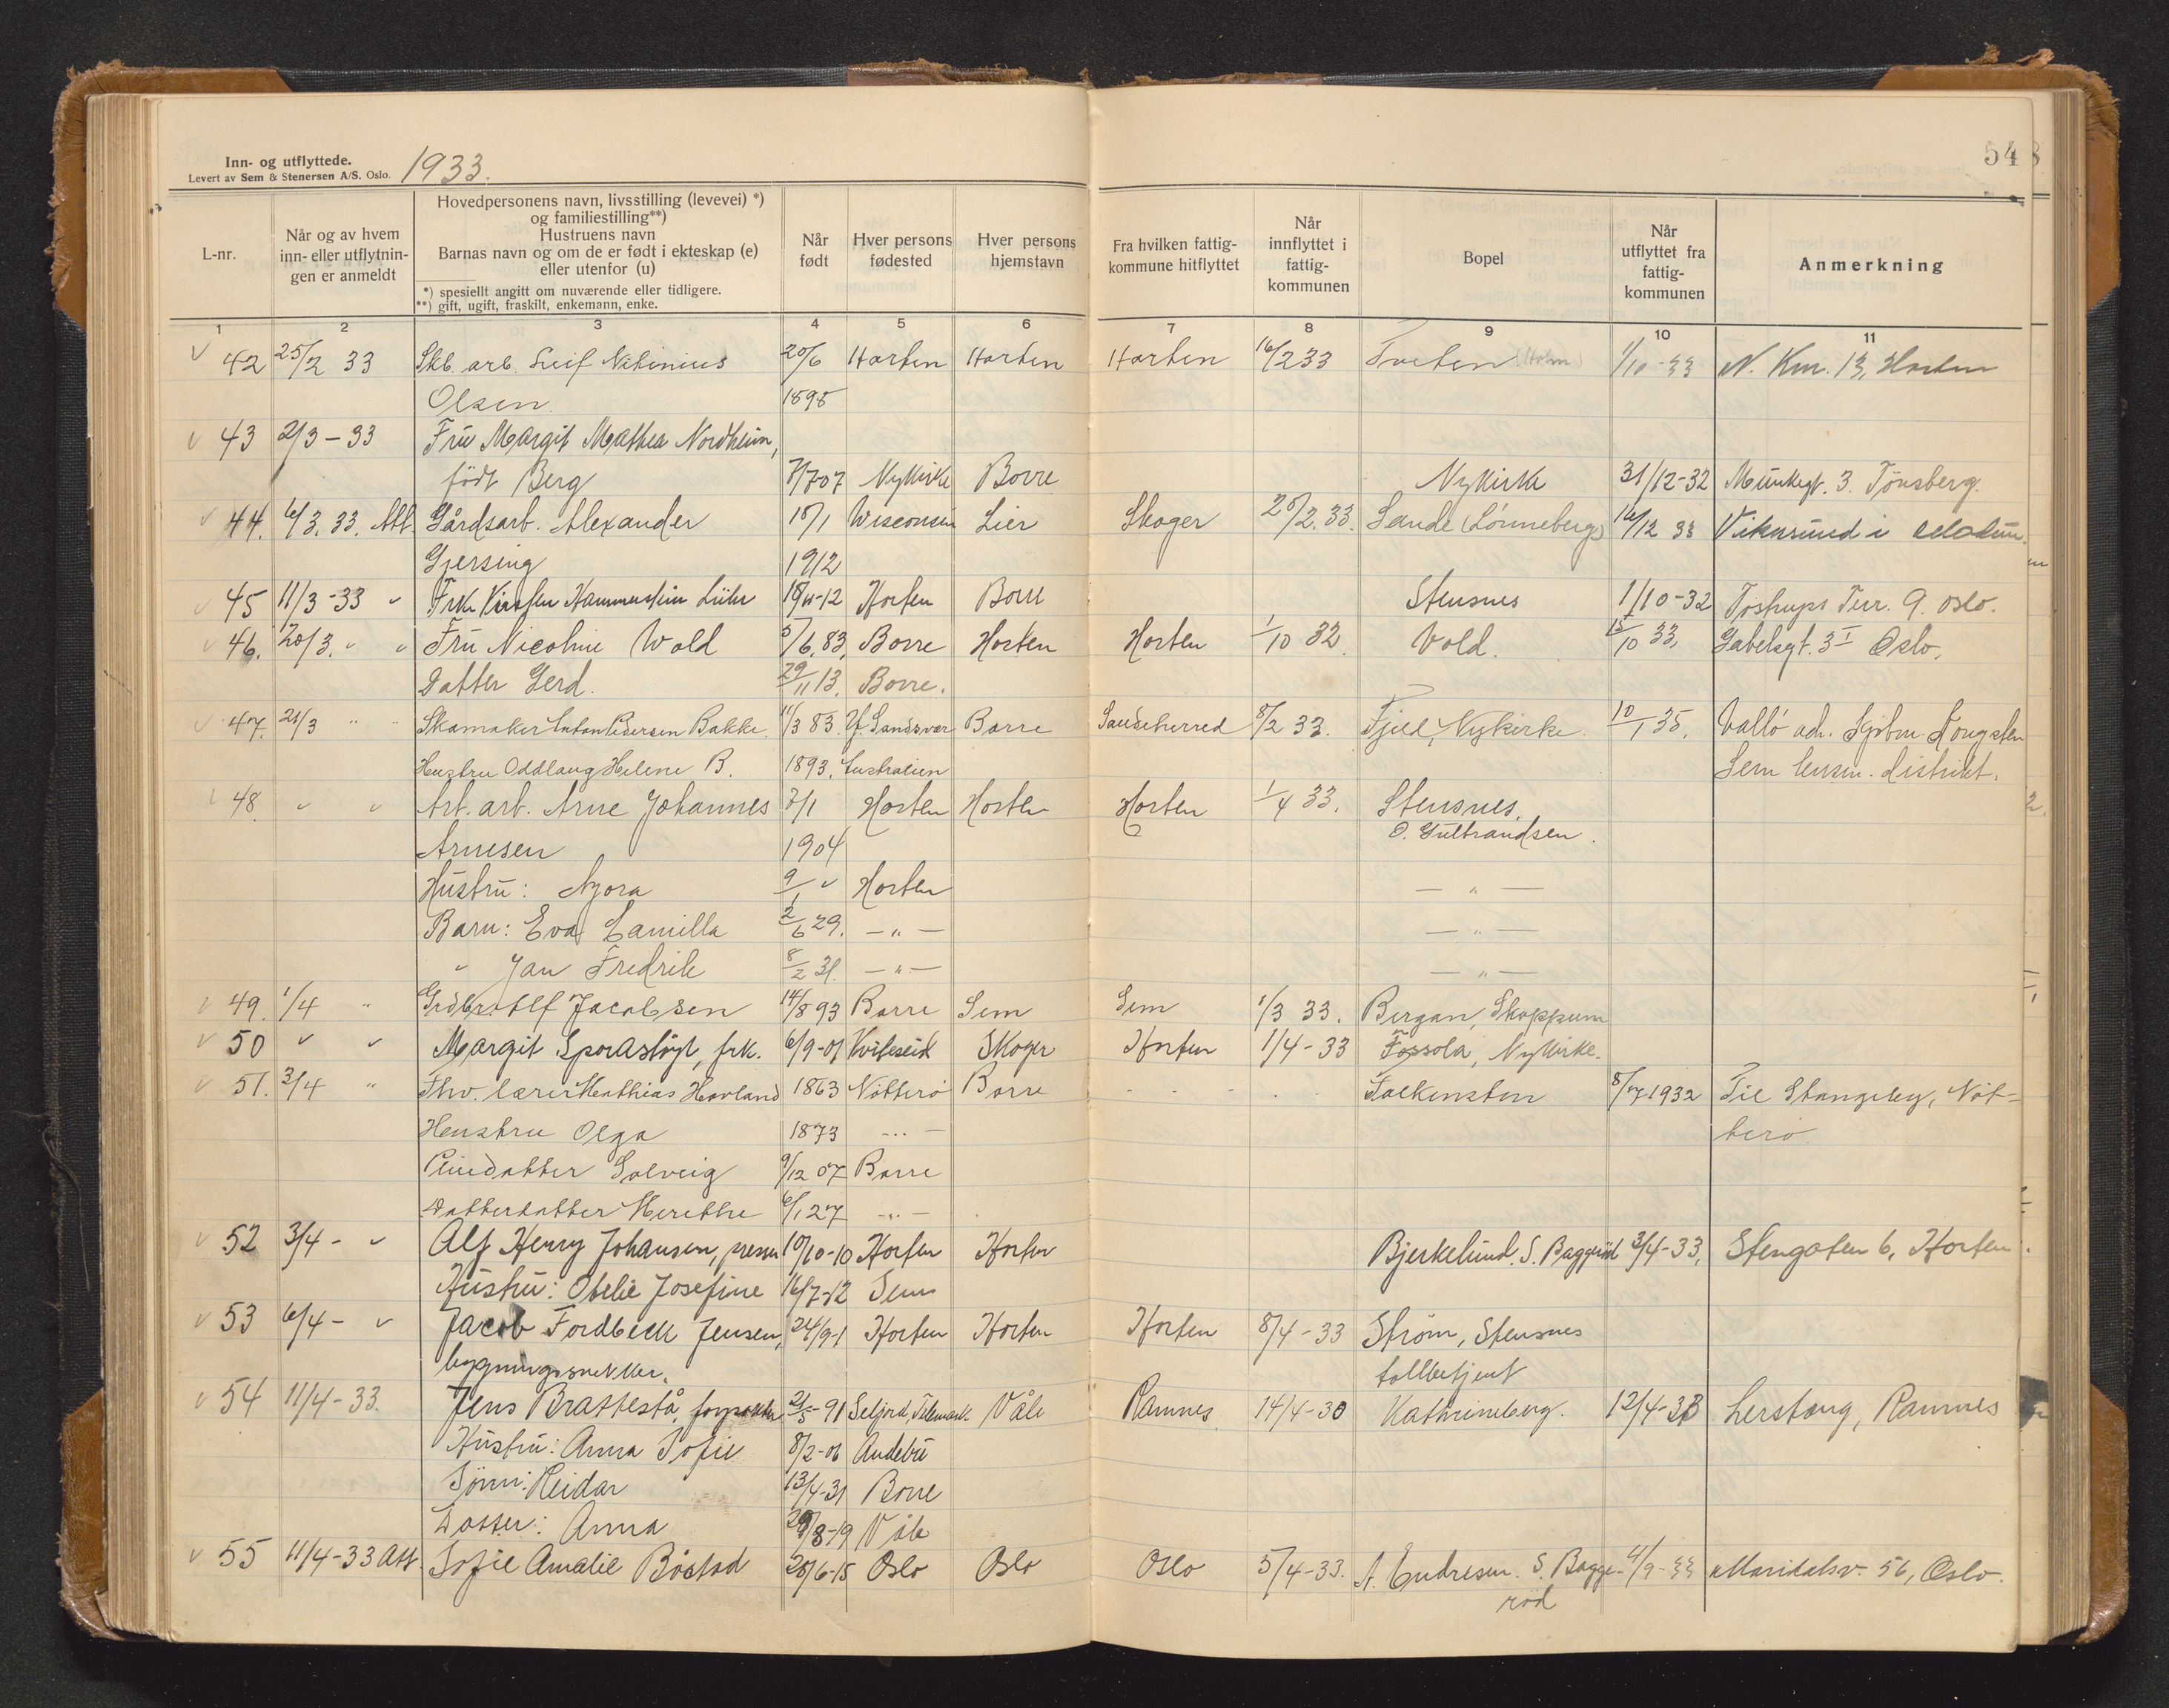 54
Inn- og utflyttede.
Levert av Sem & Stenersen A/S, Oslo. 1933.
L-nr. Når og av hvem inn- eller utflytningen er anmeldt
Hovedpersonens navn, livsstilling (levevei) *)
og familiestilling**)
Hustruens navn
Barnas navn og om de er født i ekteskap (e)
eller utenfor (u)
*) spesiellt angitt om nuværende eller tidligere.
**) gift, ugift, fraskilt, enkemann, enke.
Når født Hver persons fødested Hver persons hjemstavn Fra hvilken fattigkommune hitflyttet Når innflyttet i fattigkommunen Bopel Når utflyttet fra fattigkommunen Anmerkning
1 2 3 4 5 6 7 8 9 10 11
42 25/2 33 Skb. arb. Leif 20/6 Horten Horten Horten 16/2 33 Tveten 1/10-33 N. Km. 13, Horten
Olsen 1898
43 2/3-33 Fru Margit Mathea Nordheim,
født Berg 7/7 07 Nykirke Borre Nykirke 31/12-32 Munkegt. 3. Tønsberg.
44. 6/3. 33. Att. Gårdsarb. Alexander 15/1 Wisconsin Lier Skoger 28/2. 33. Sande (Lønneberg) 16/12 33 Vikersund i Modum.
Gjersing 1912
45 11/3-33 " Frk. Kirsten Hammerstein Lühr 18/11-12 Horten Borre Stensnes 1/10-32 Tostrups Terr. 9. Oslo.
46. 20/3. " " Fru Nicoline Wold 5/6. 83. Borre Horten Horten 1/10 32. Vold. 15/10 33, Gabelsgt. 3 I Oslo.
Datter Gerd. 29/11 13. Borre.
47. 21/3 " " Skomaker Anton Pedersen Bakke. 11/3 83. Y. Sandsvær Borre Sandeherred 8/2 33. Fjeld, Nykirke 10/1 35. Valló adr. Kongsten
Hustru Oddlaug Helene B. 1893. Australien Sem distrikt.
48. " " Arb. arb. Arne Johannes 7/1 Horten Horten Horten 1/4 33. Stensnes,
O. Gulbrandsen.
Arnesen 1904
Hustru: Agora 9/1 " Horten — " —
Barn: Eva Camilla 2/6 29. — " — — " —
" Jan Fredrik 8/2 31. — " — — " —
49. 1/4 " Alf Jacobsen 14/8 93 Borre Sem Sem 1/3 33. Bergan, Skoppum
50 " " Margit Sporastøyl, frk. 6/9-01 Kviteseid Skoger Horten 1/4-33 Fossola, Nykirke.
51. 3/4 " Fhv. lærer Mathias Hovland 1863 Nøtterø Borre - - - . . Falkensten 8/7 1932 Til Stangeby, Nøt=
Hustru Olga 1873 — " — terø
Pleiedatter Solveig 9/12 07 Borre
Datterdatter Merethe 6/1 27 — " —
52 3/4 - " Alf Henry Johansen, presser 10/10-10 Horten Horten Bjerkelund. S. Baggerød 3/4-33, Stengaten 6, Horten.
Hustru: Otelie Josefine 16/7-12 Sem
53 6/4 - " Jacob Fordbeck Jensen, 24/9-1 Horten Horten Horten 8/4-33 Strøm, Stensnes
bygningssnekker. tollbetjent
54 11/4-33. Jens Brattestå, forpakter 21/5-91 Seljord, Telemark. Våle Ramnes 14/4-30 Kathrineberg. 12/4-33 Lerstang, Ramnes
Hustru: Anna Sofie 8/2-06 Andebu
Sønn: Reidar 13/4-31 Borre
Datter: Anna 29/8-19 Våle
55 11/4-33 Att. Sofie Amalie Båstad 28/6-15 Oslo Oslo Oslo 5/4-33. A. Endresen. S. Bagge- 4/9-33 Maridalsv. 56, Oslo.
rød